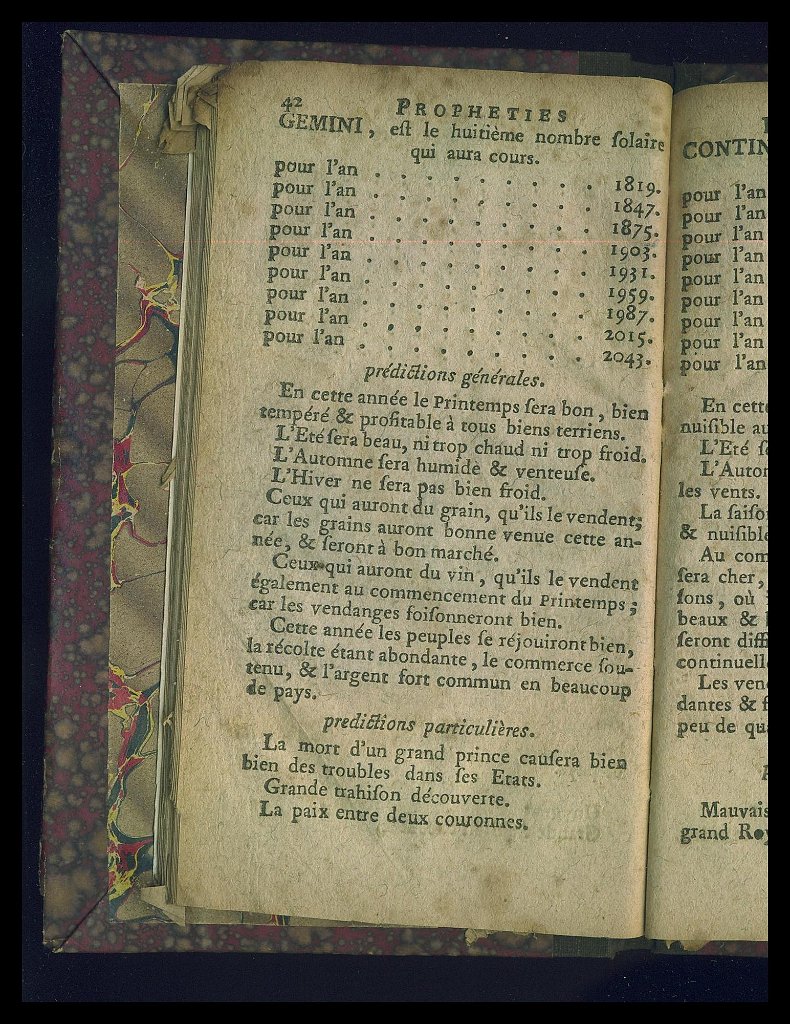 42 PROPHETIES
GEMINI, eſt le huitième nombre ſolaire
qui aura cours.
pour l'an . . . . . . . . . 1819.
pour l'an . . . . . . . . . 1847.
pour l'an . . . . . . . . . 1875.
pour l'an . . . . . . . . . 1903.
pour l'an . . . . . . . . . 1931.
pour l'an . . . . . . . . . 1959.
pour l'an . . . . . . . . . 1987.
pour l'an . . . . . . . . . 2015.
pour l'an . . . . . . . . . 2043.
prédictions générales.
En cette année le Printemps ſera bon, bien
tempéré & profitable à tous biens terriens.
L'Eté ſera beau, ni trop chaud ni trop froid.
L'Automne ſera humide & venteuſe.
L'Hiver ne ſera pas bien froid.
Ceux qui auront du grain, qu'ils le vendent;
car les grains auront bonne venue cette an-
née, & ſeront à bon marché.
Ceux qui auront du vin, qu'ils le vendent
également au commencement du Printemps;
car les vendanges foiſonneront bien.
Cette année les peuples ſe réjouiront bien,
la récolte étant abondante, le commerce ſou-
tenu, & l'argent fort commun en beaucoup
de pays.
predictions particulières.
La mort d'un grand prince cauſera bien
bien des troubles dans ſes Etats.
Grande trahiſon découverte.
La paix entre deux couronnes.
CONTIN
pour l'an
pour l'an
pour l'an
pour l'an
pour l'an
pour l'an
pour l'an
pour l'an
pour l'an
En cette
nuiſible au
L'Eté ſe
L'Autom
les vents.
La ſaiſo
& nuiſible
Au com
ſera cher,
ſons, où
beaux &
ſeront diff
continuell
Les vend
dantes & f
peu de qua
Mauvais
grand Roy